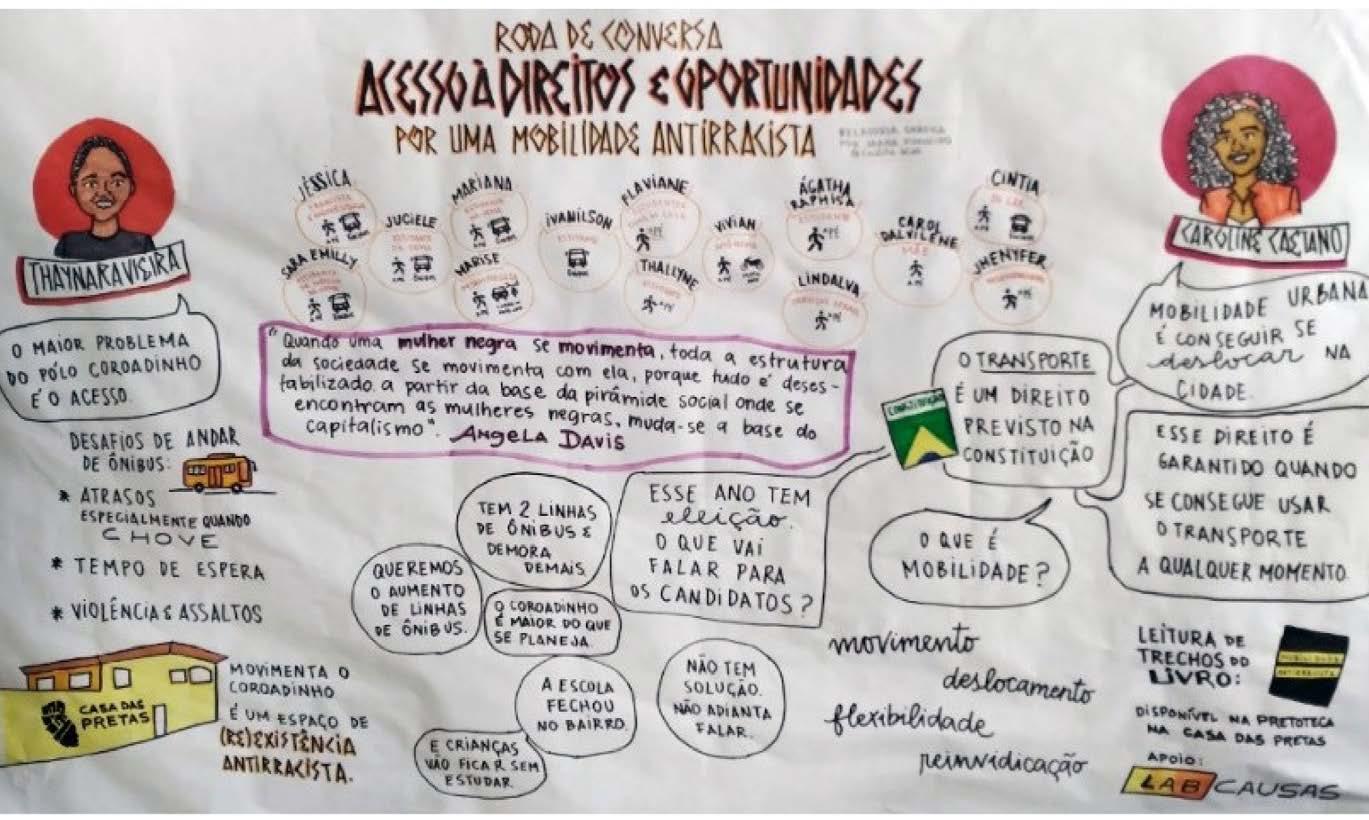 RODA DE CONVERSA
ACESSO À DIREITOS E OPORTUNIDADES
POR UMA MOBILIDADE ANTIRRACISTA
RELATORIA GRÁFICA
THAYNARA VIEIRA
O MAIOR PROBLEMA
DO PÓLO COROADINHO
É O ACESSO.
DESAFIOS DE ANDAR
DE ÔNIBUS:
* ATRASOS
ESPECIALMENTE QUANDO
CHOVE
* TEMPO DE ESPERA
* VIOLÊNCIA & ASSALTOS
CASA DAS
PRETAS
MOVIMENTA O
COROADINHO
É UM ESPAÇO DE
(RE)EXISTÊNCIA
ANTIRRACISTA.
JÉSSICA
SARA EMILLY
JUCIELE
MARIANA
MARISE
IVANILSON
FLAVIANE
THALLYNE
VIVIAN
ÁGATHA
RAPHISA
LINDALVA
CAROL
DALVILENE
MÃE
CINTIA
JHENYFER
"Quando uma mulher negra se movimenta, toda a estrutura
da sociedade se movimenta com ela, porque tudo é deses-
tabilizado a partir da base da pirâmide social onde se
encontram as mulheres negras, muda-se a base do
capitalismo". Angela Davis
TEM 2 LINHAS
DE ÔNIBUS E
DEMORA
DEMAIS
QUEREMOS
O AUMENTO
DE LINHAS
DE ÔNIBUS.
O COROADINHO
É MAIOR DO QUE
SE PLANEJA.
A ESCOLA
FECHOU
NO BAIRRO.
E CRIANÇAS
VÃO FICAR SEM
ESTUDAR.
NÃO TEM
SOLUÇÃO.
NÃO ADIANTA
FALAR.
ESSE ANO TEM
eleição.
O QUE VAI
FALAR PARA
OS CANDIDATOS?
CAROLINE CAETANO
MOBILIDADE URBANA
É CONSEGUIR SE
deslocar NA
CIDADE.
CONSTITUIÇÃO
O TRANSPORTE
É UM DIREITO
PREVISTO NA
CONSTITUIÇÃO
ESSE DIREITO É
GARANTIDO QUANDO
SE CONSEGUE USAR
O TRANSPORTE
A QUALQUER MOMENTO
O QUE É
MOBILIDADE?
movimento
deslocamento
flexibilidade
reinvidicação
LEITURA DE
TRECHOS DO
LIVRO:
MOBILIDADE
ANTIRRACISTA
DISPONÍVEL NA PRETOTECA
NA CASA DAS PRETAS
APOIO:
LAB CAUSAS